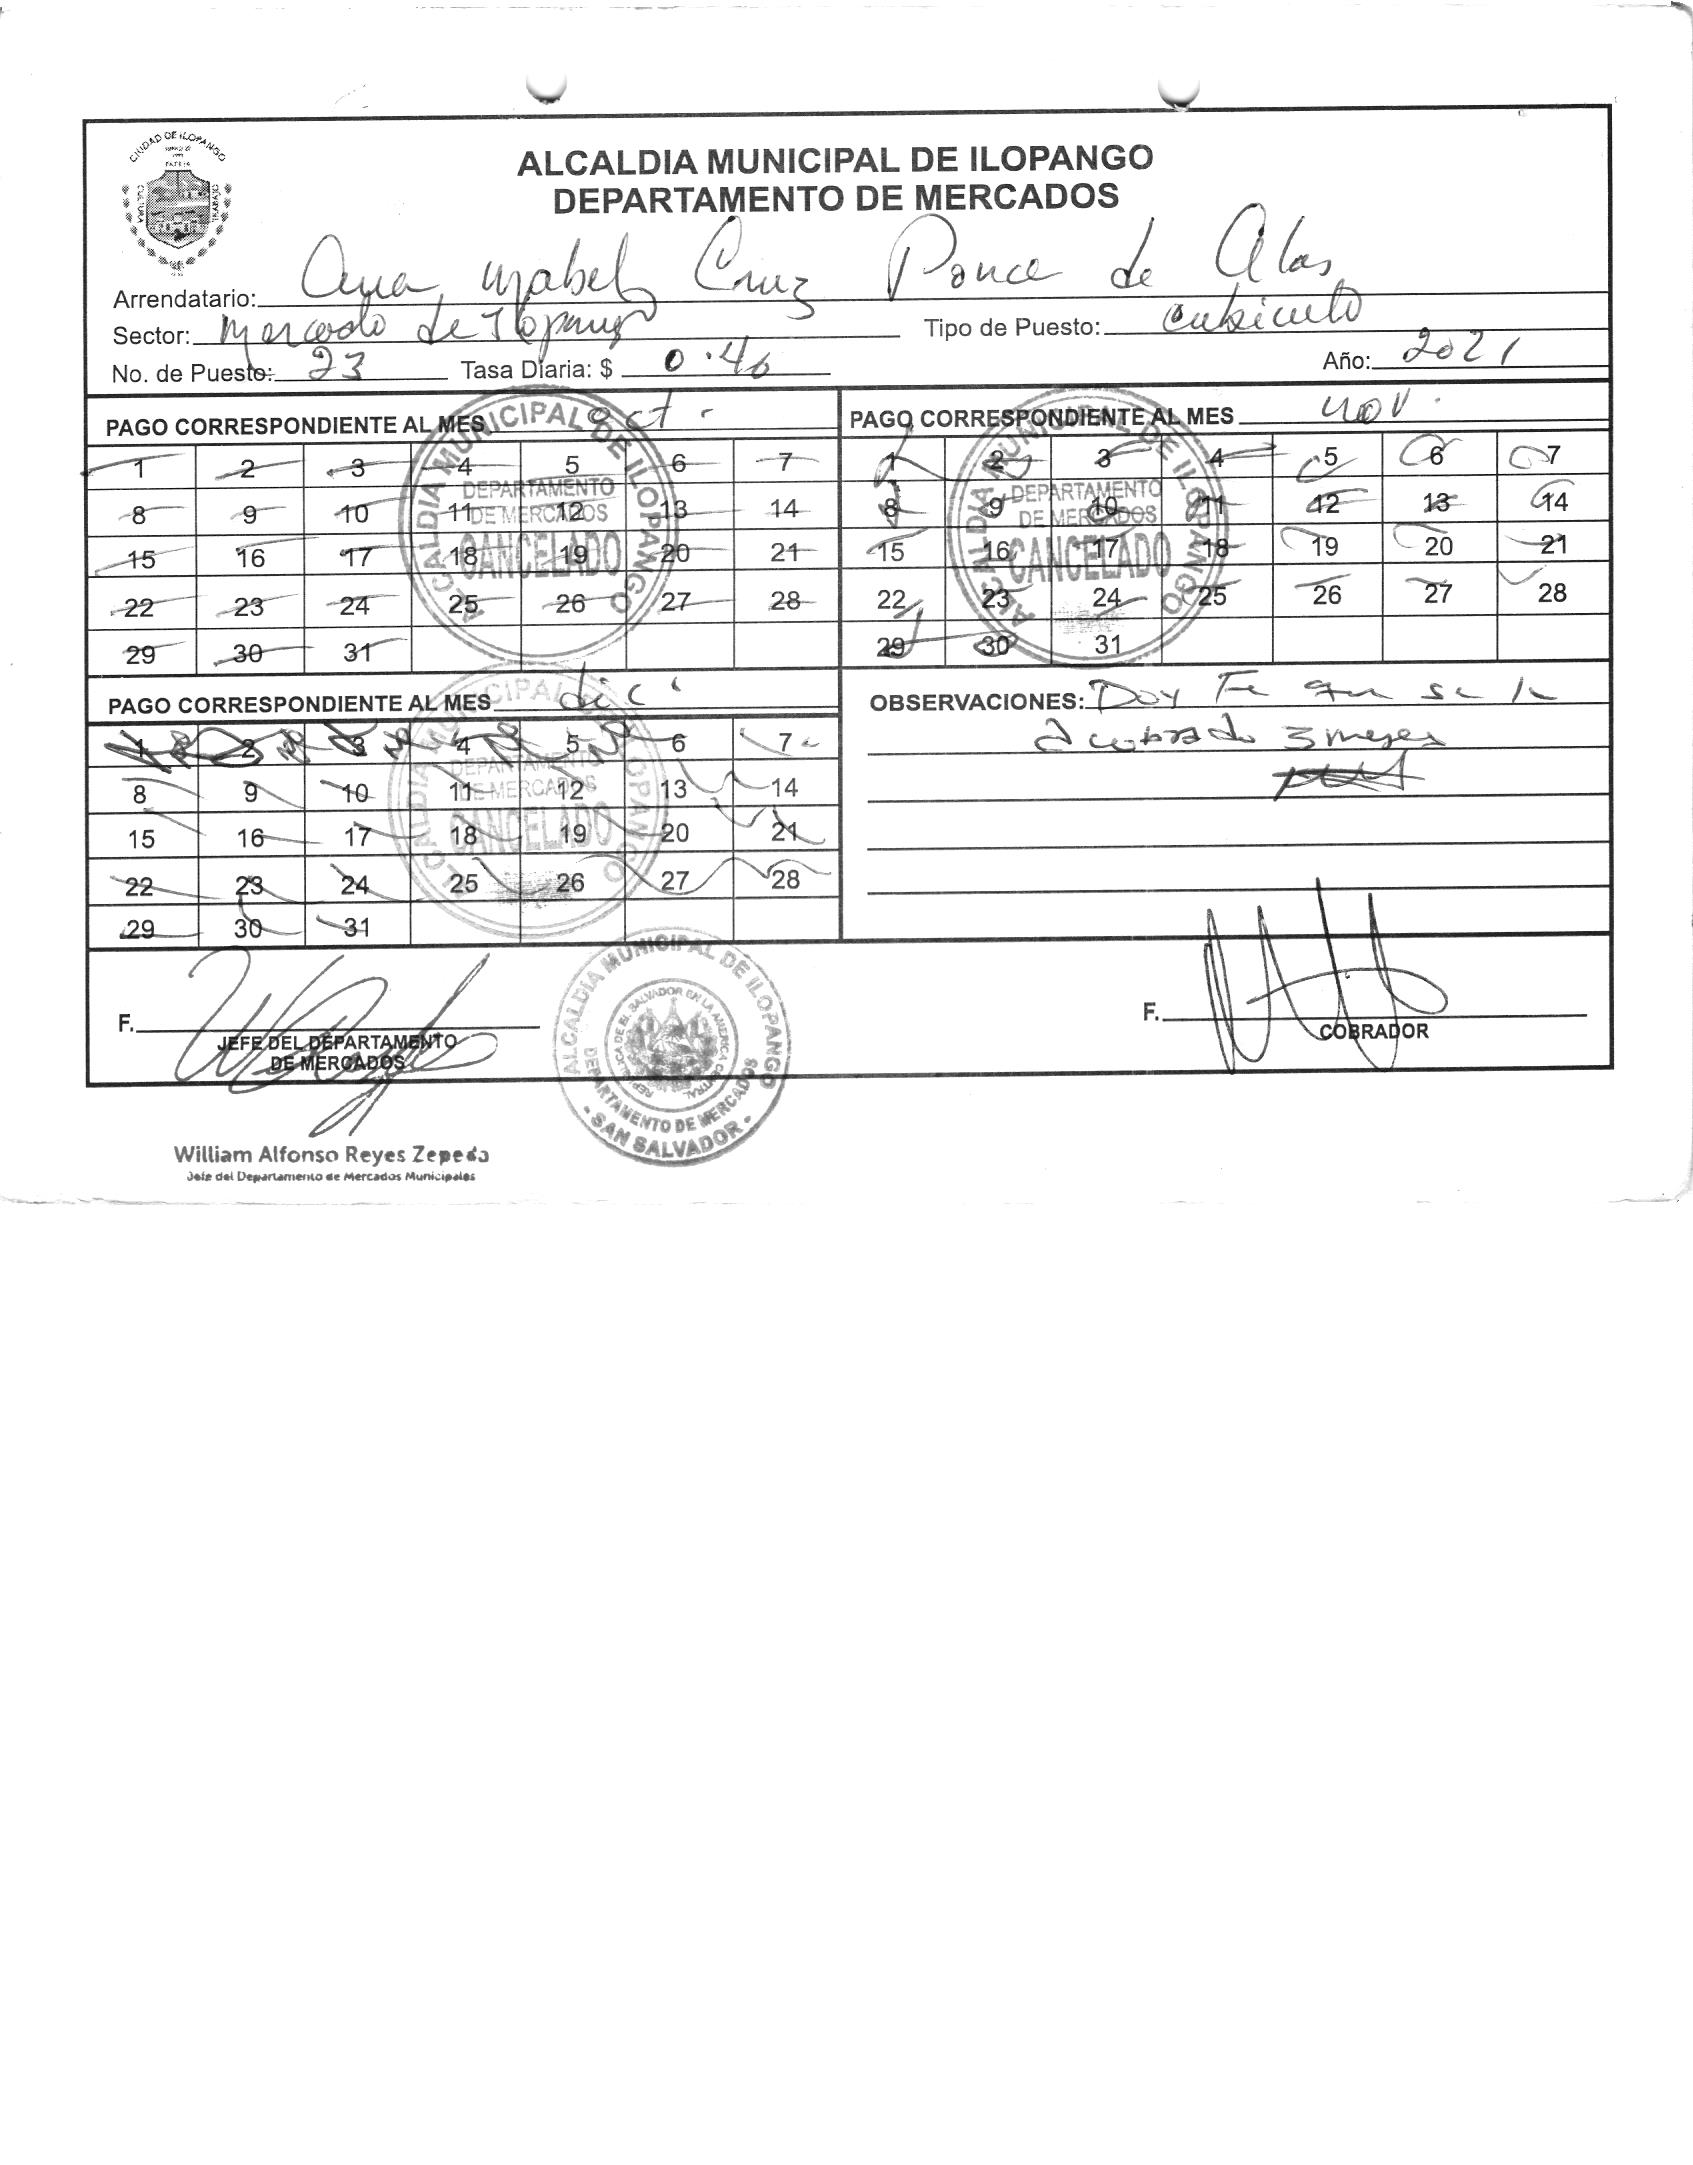 CIUDAD DE ILOPANGO
CULTURA
TRABAJO
ALCALDIA MUNICIPAL DE ILOPANGO
DEPARTAMENTO DE MERCADOS
Arrendatario: Ana Isabel Cruz Ponce de Alas
Sector: Mercado de Ilopango Tipo de Puesto: Cubiculo
No. de Puesto: 23 Tasa Diaria: $ 0.40 Año: 2021
PAGO CORRESPONDIENTE AL MES oct.
1 2 3 4 5 6 7
8 9 10 11 12 13 14
15 16 17 18 19 20 21
22 23 24 25 26 27 28
29 30 31
ALCALDIA MUNICIPAL DE ILOPANGO
DEPARTAMENTO
DE MERCADOS
CANCELADO
PAGO CORRESPONDIENTE AL MES nov.
1 2 3 4 5 6 7
8 9 10 11 12 13 14
15 16 17 18 19 20 21
22 23 24 25 26 27 28
29 30 31
ALCALDIA MUNICIPAL DE ILOPANGO
DEPARTAMENTO
DE MERCADOS
CANCELADO
PAGO CORRESPONDIENTE AL MES dic.
1 2 3 4 5 6 7
8 9 10 11 12 13 14
15 16 17 18 19 20 21
22 23 24 25 26 27 28
29 30 31
ALCALDIA MUNICIPAL DE ILOPANGO
DEPARTAMENTO
DE MERCADOS
CANCELADO
OBSERVACIONES: Doy Fe que se le
a cobrado 3 meses
F.
JEFE DEL DEPARTAMENTO
DE MERCADOS
ALCALDIA MUNICIPAL DE ILOPANGO
REPUBLICA DE EL SALVADOR EN LA AMERICA CENTRAL
DEPARTAMENTO DE MERCADOS
- SAN SALVADOR -
F.
COBRADOR
William Alfonso Reyes Zepeda
Jefe del Departamento de Mercados Municipales